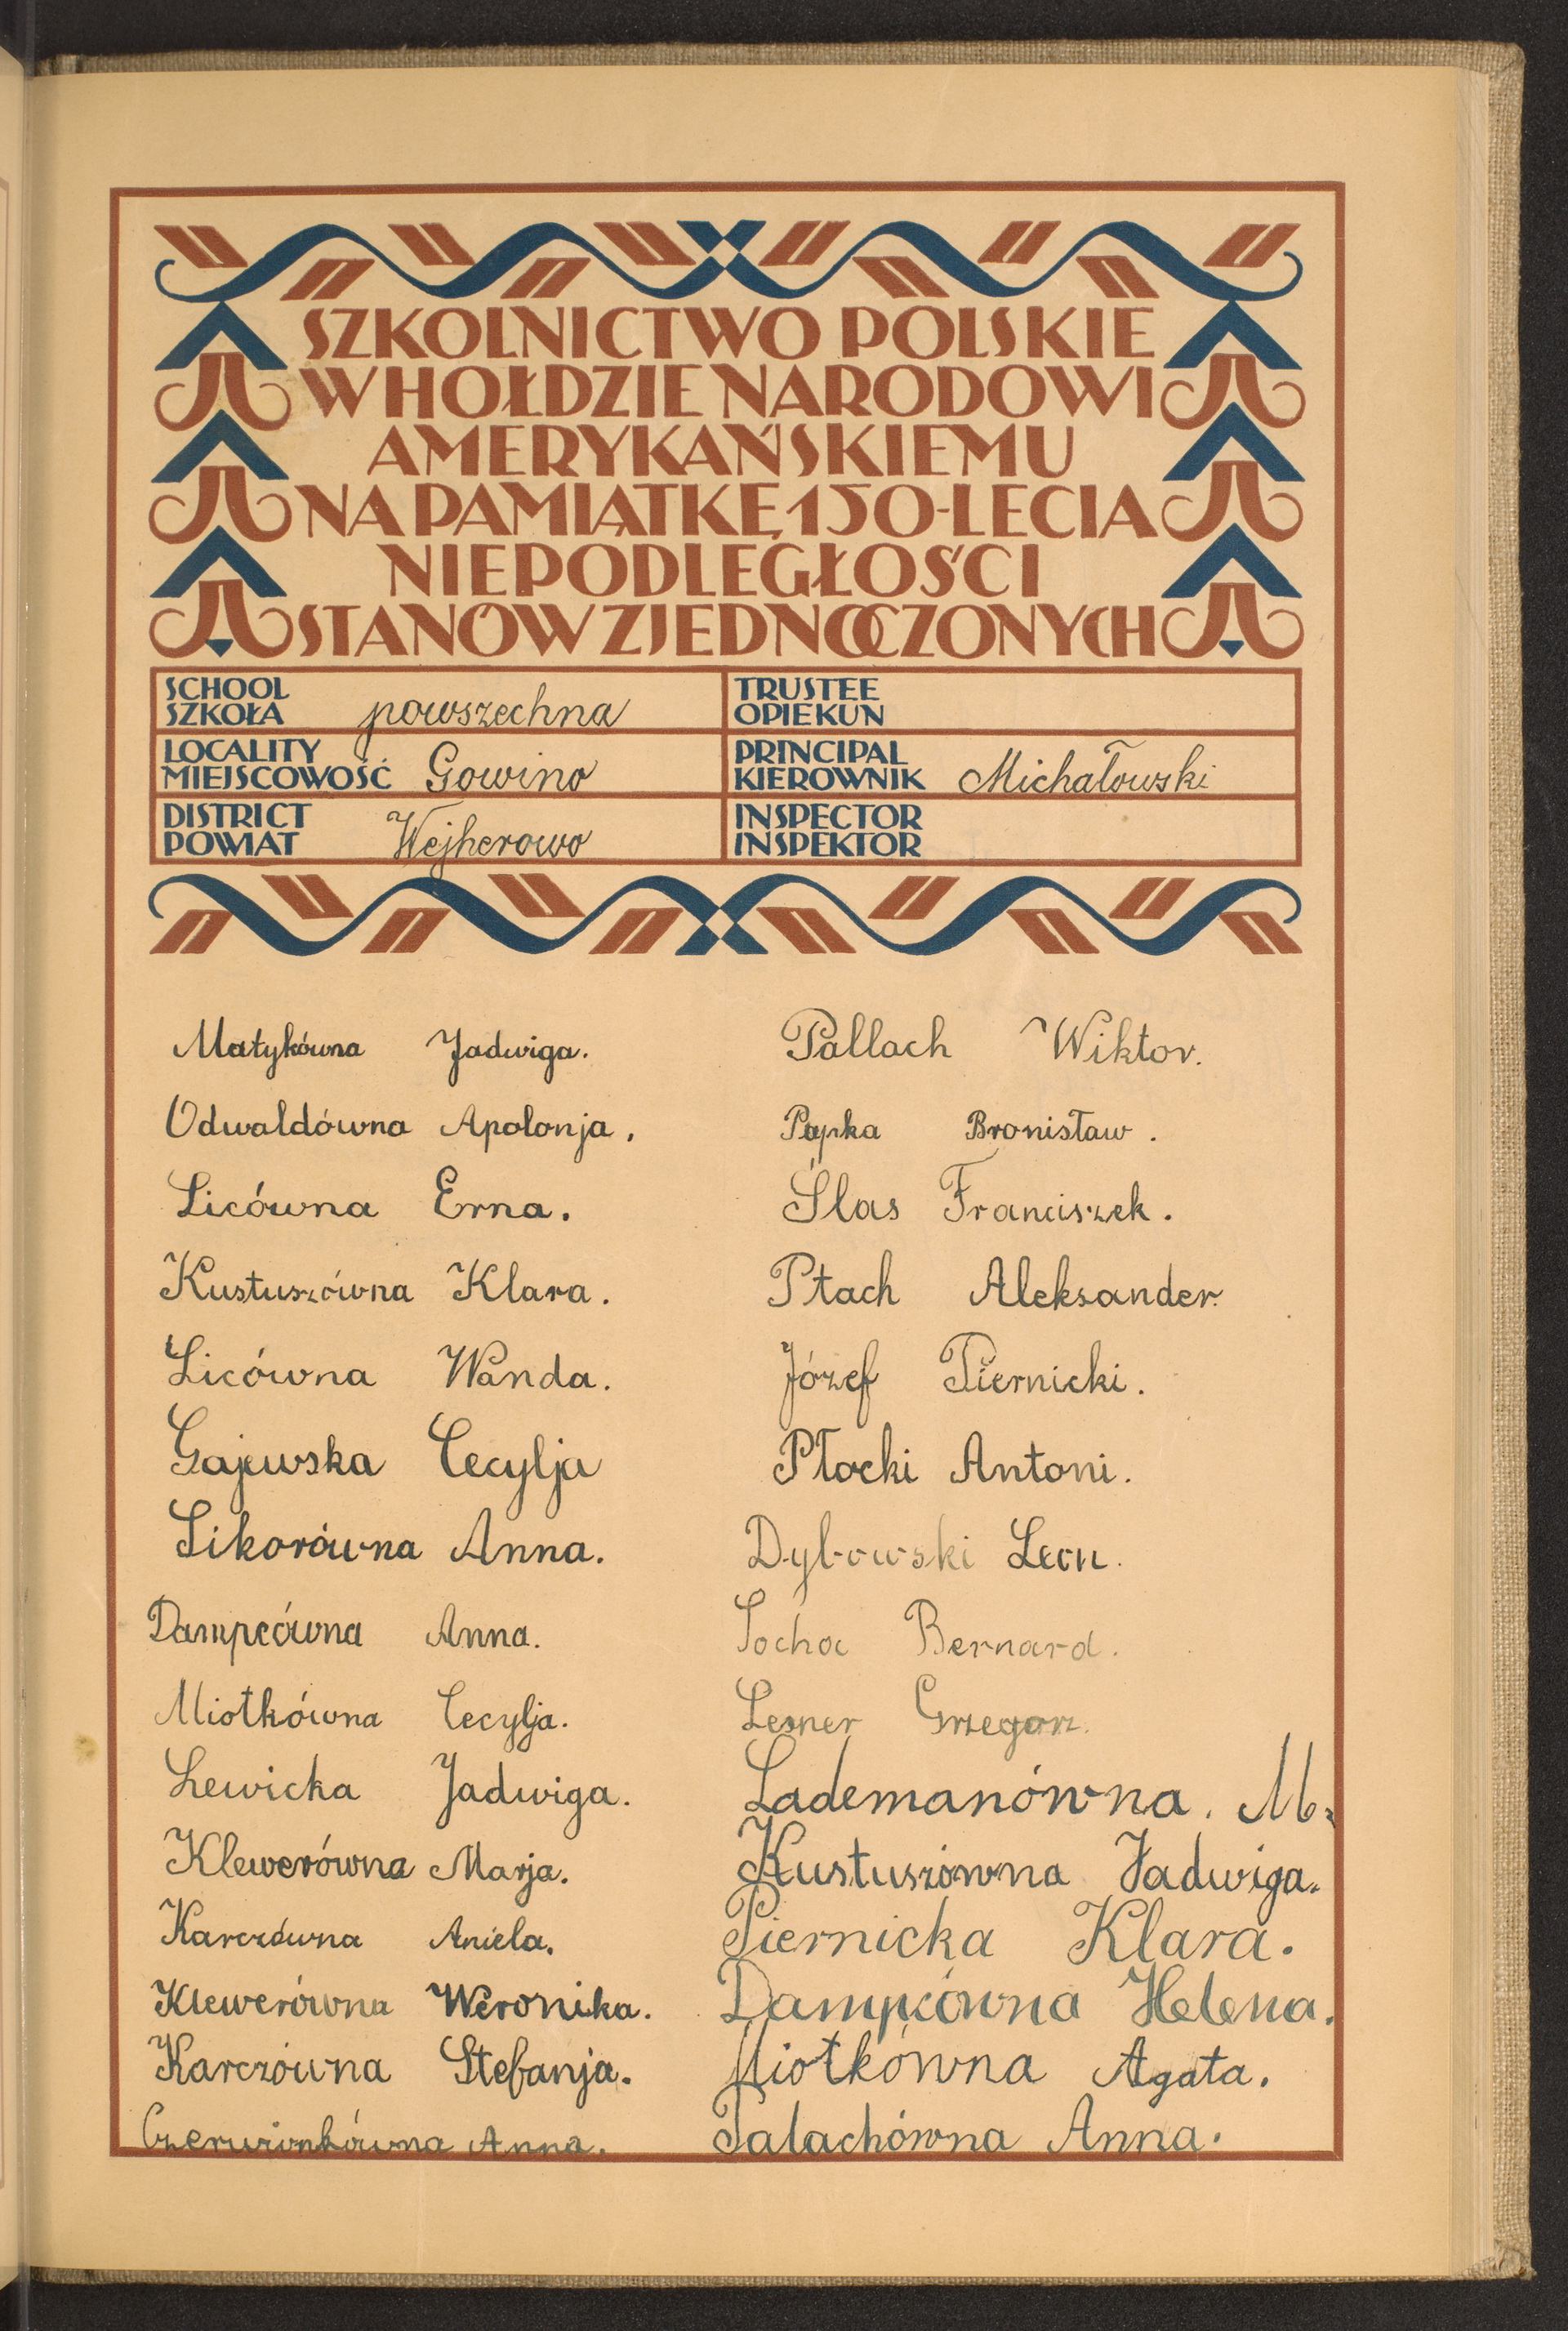 SZKOLNICTWO POLSKIE
W HOŁDZIE NARODOWI
AMERYKAŃSKIEMU
NA PAMIĄTKĘ 150-LECIA
NIEPODLEGŁOŚCI
STANÓW ZJEDNOCZONYCH
SCHOOL
SZKOŁA powszechna
TRUSTEE
OPIEKUN
LOCALITY
MIEJSCOWOŚĆ Gowino
PRINCIPAL
KIEROWNIK Michałowski
DISTRICT
POWIAT Wejherowo
INSPECTOR
INSPEKTOR
Matykówna Jadwiga.
Odwaldówna Apolonja.
Licówna Erna.
Kustuszówna Klara.
Licówna Wanda.
Gajewska Cecylja
Sikorówna Anna.
Dampcówna Anna.
Miotkówna Cecylja.
Lewicka Jadwiga.
Klewerówna Marja.
Karczówna Aniela.
Klewerówna Weronika.
Karczówna Stefanja.
Czerwionkówna Anna.
Pallach Wiktor.
Papka Bronisław.
Ślas Franciszek.
Ptach Aleksander.
Józef Piernicki.
Płocki Antoni.
Dybowski Leon.
Socha Bernard.
Lesner Grzegorz.
Lademanówna. M.
Kustuszówna Jadwiga.
Piernicka Klara.
Dampcówna Helena.
Miotkówna Agata.
Palachówna Anna.